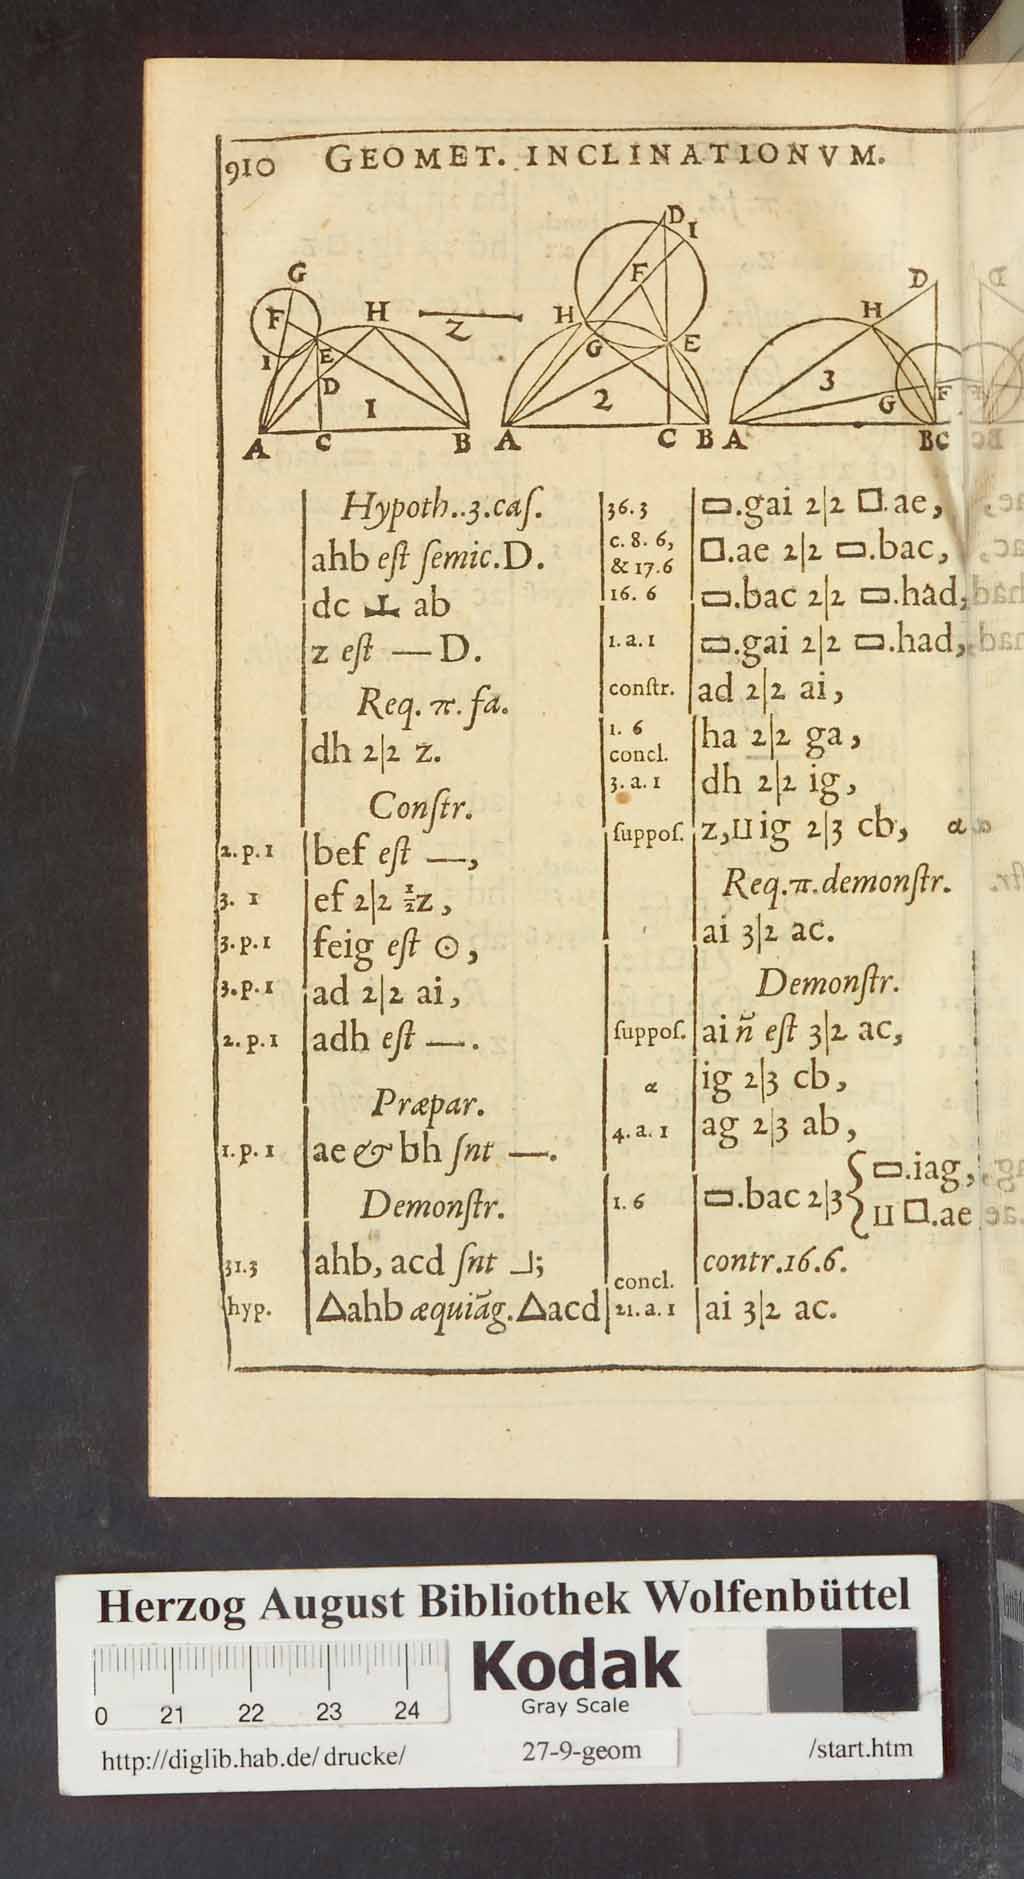 910 GEOMET. INCLINATIONVM.
G F H I E D Z 1 A C B
D I F H G E 2 A C B
D H 3 G F A BC
Hypoth..3.caſ.
ahb eſt ſemic.D.
dc ⊥ ab
z eſt — D.
Req. π. fa.
dh 2|2 z.
Conſtr.
2.p.1 bef eſt —,
3. 1 ef 2|2 ½z,
3.p.1 feig eſt ⊙,
3.p.1 ad 2|2 ai,
2.p.1 adh eſt —.
Præpar.
1.p.1 ae & bh ſnt —.
Demonſtr.
31.3 ahb, acd ſnt ⅃;
hyp. △ahb æquiãg.△acd
36.3 ▭.gai 2|2 □.ae,
c. 8. 6, & 17.6 □.ae 2|2 ▭.bac,
16. 6 ▭.bac 2|2 ▭.had,
1. a. 1 ▭.gai 2|2 ▭.had,
conſtr. ad 2|2 ai,
1. 6 concl. ha 2|2 ga,
3. a. 1 dh 2|2 ig,
ſuppoſ. z,⊔ig 2|3 cb, α
Req.π.demonſtr.
ai 3|2 ac.
Demonſtr.
ſuppoſ. ai ñ eſt 3|2 ac,
α ig 2|3 cb,
4. a. 1 ag 2|3 ab,
1. 6 ▭.bac 2|3 { ▭.iag,
⊔ □.ae
contr.16.6.
concl.
21. a. 1 ai 3|2 ac.
Herzog August Bibliothek Wolfenbüttel
Kodak
Gray Scale
0 21 22 23 24
http://diglib.hab.de/drucke/ 27-9-geom /start.htm